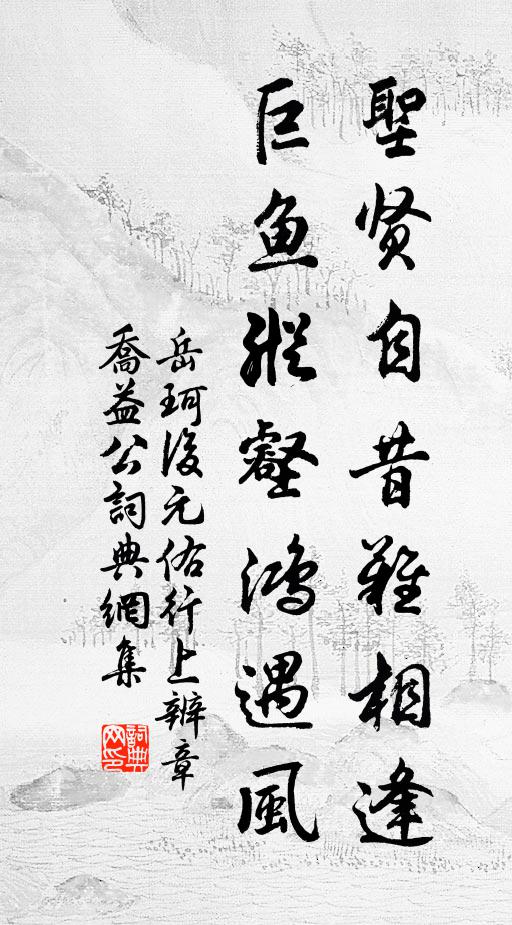 聖贤自昔難相逢
巨鱼縱壑鴻遇風
岳珂後元佑行上辨章
喬益公詞典網集
詞典网印